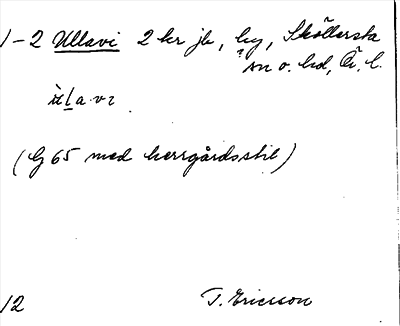 1-2 Ullavi 2 kr jb, by, Sköllersta
sn o. hd, Ö. l.
ùl̲a·vı
(G 65 med herrgårdsstil)
12 T. Ericsson